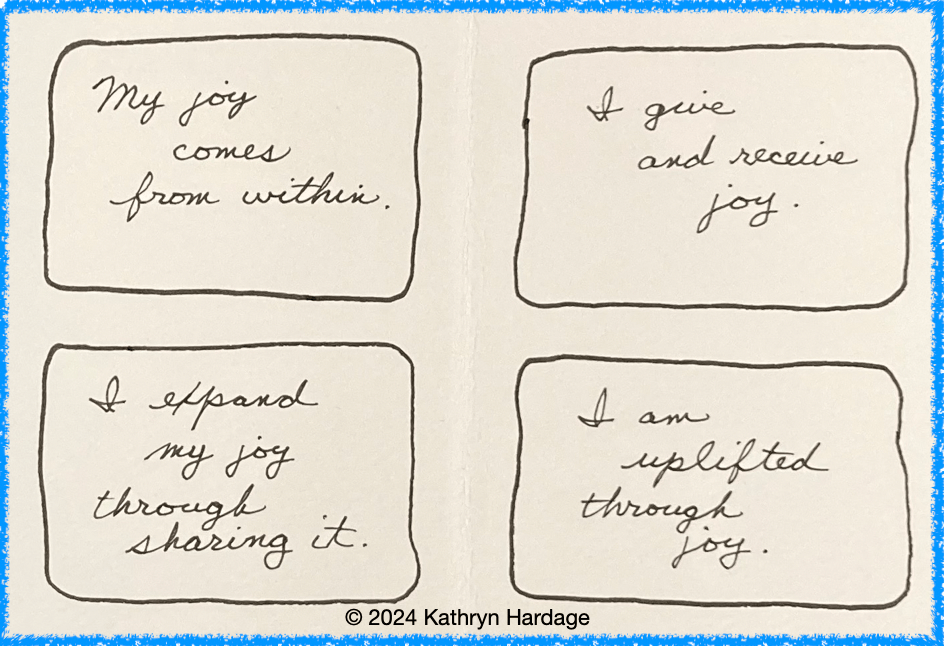 My joy
comes
from within.
I give
and receive
joy.
I expand
my joy
through
sharing it.
I am
uplifted
through
joy.
© 2024 Kathryn Hardage